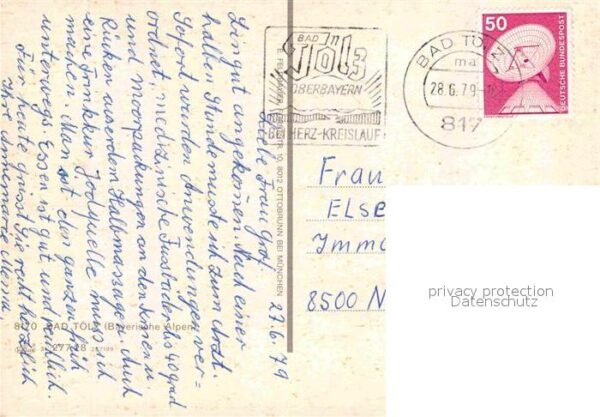 27.6.79
Liebe Frau Graf
Sind gut gekommen. Nach einer
halben Stunde musste ich zum Arzt.
Sofort wurden Anwendungen ver-
ordnet, medizinische Fussbäder bis 40 grad
und Moorpackungen an den Knien u.
Rücken ausserdem Halbmassagen. Auch
eine Trinkkur Jodquelle muss ich
machen. Man ist den ganzen
unterwegs. Essen ist gut und reichlich.
Für heute grüsst Sie recht herzlich
Ihre Annemarie
8170 BAD TÖLZ (Bayerische Alpen)
277/28
10, 8012 OTTOBRUNN BEI MÜNCHEN
BAD
TÖLZ
OBERBAYERN
BEI HERZ-KREISLAUF
BAD TÖLZ
ma
28.6.79
817
50
DEUTSCHE BUNDESPOST
Frau
Else
Imm
8500 N
privacy protection
Datenschutz